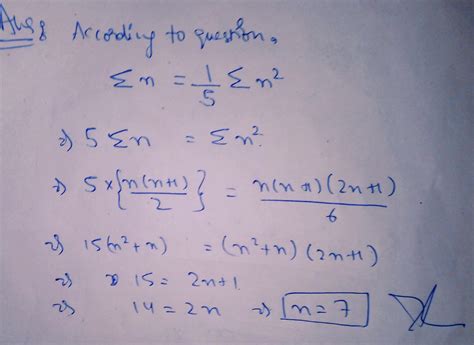 Ans 8 According to question,
Σn = 1/5 Σn²
⇒) 5 Σn = Σn².
⇒) 5×{n(n+1)/2} = n(n+1)(2n+1)/6
⇒) 15(n²+n) = (n²+n)(2n+1)
⇒) 15 = 2n+1
⇒) 14 = 2n ⇒) n=7